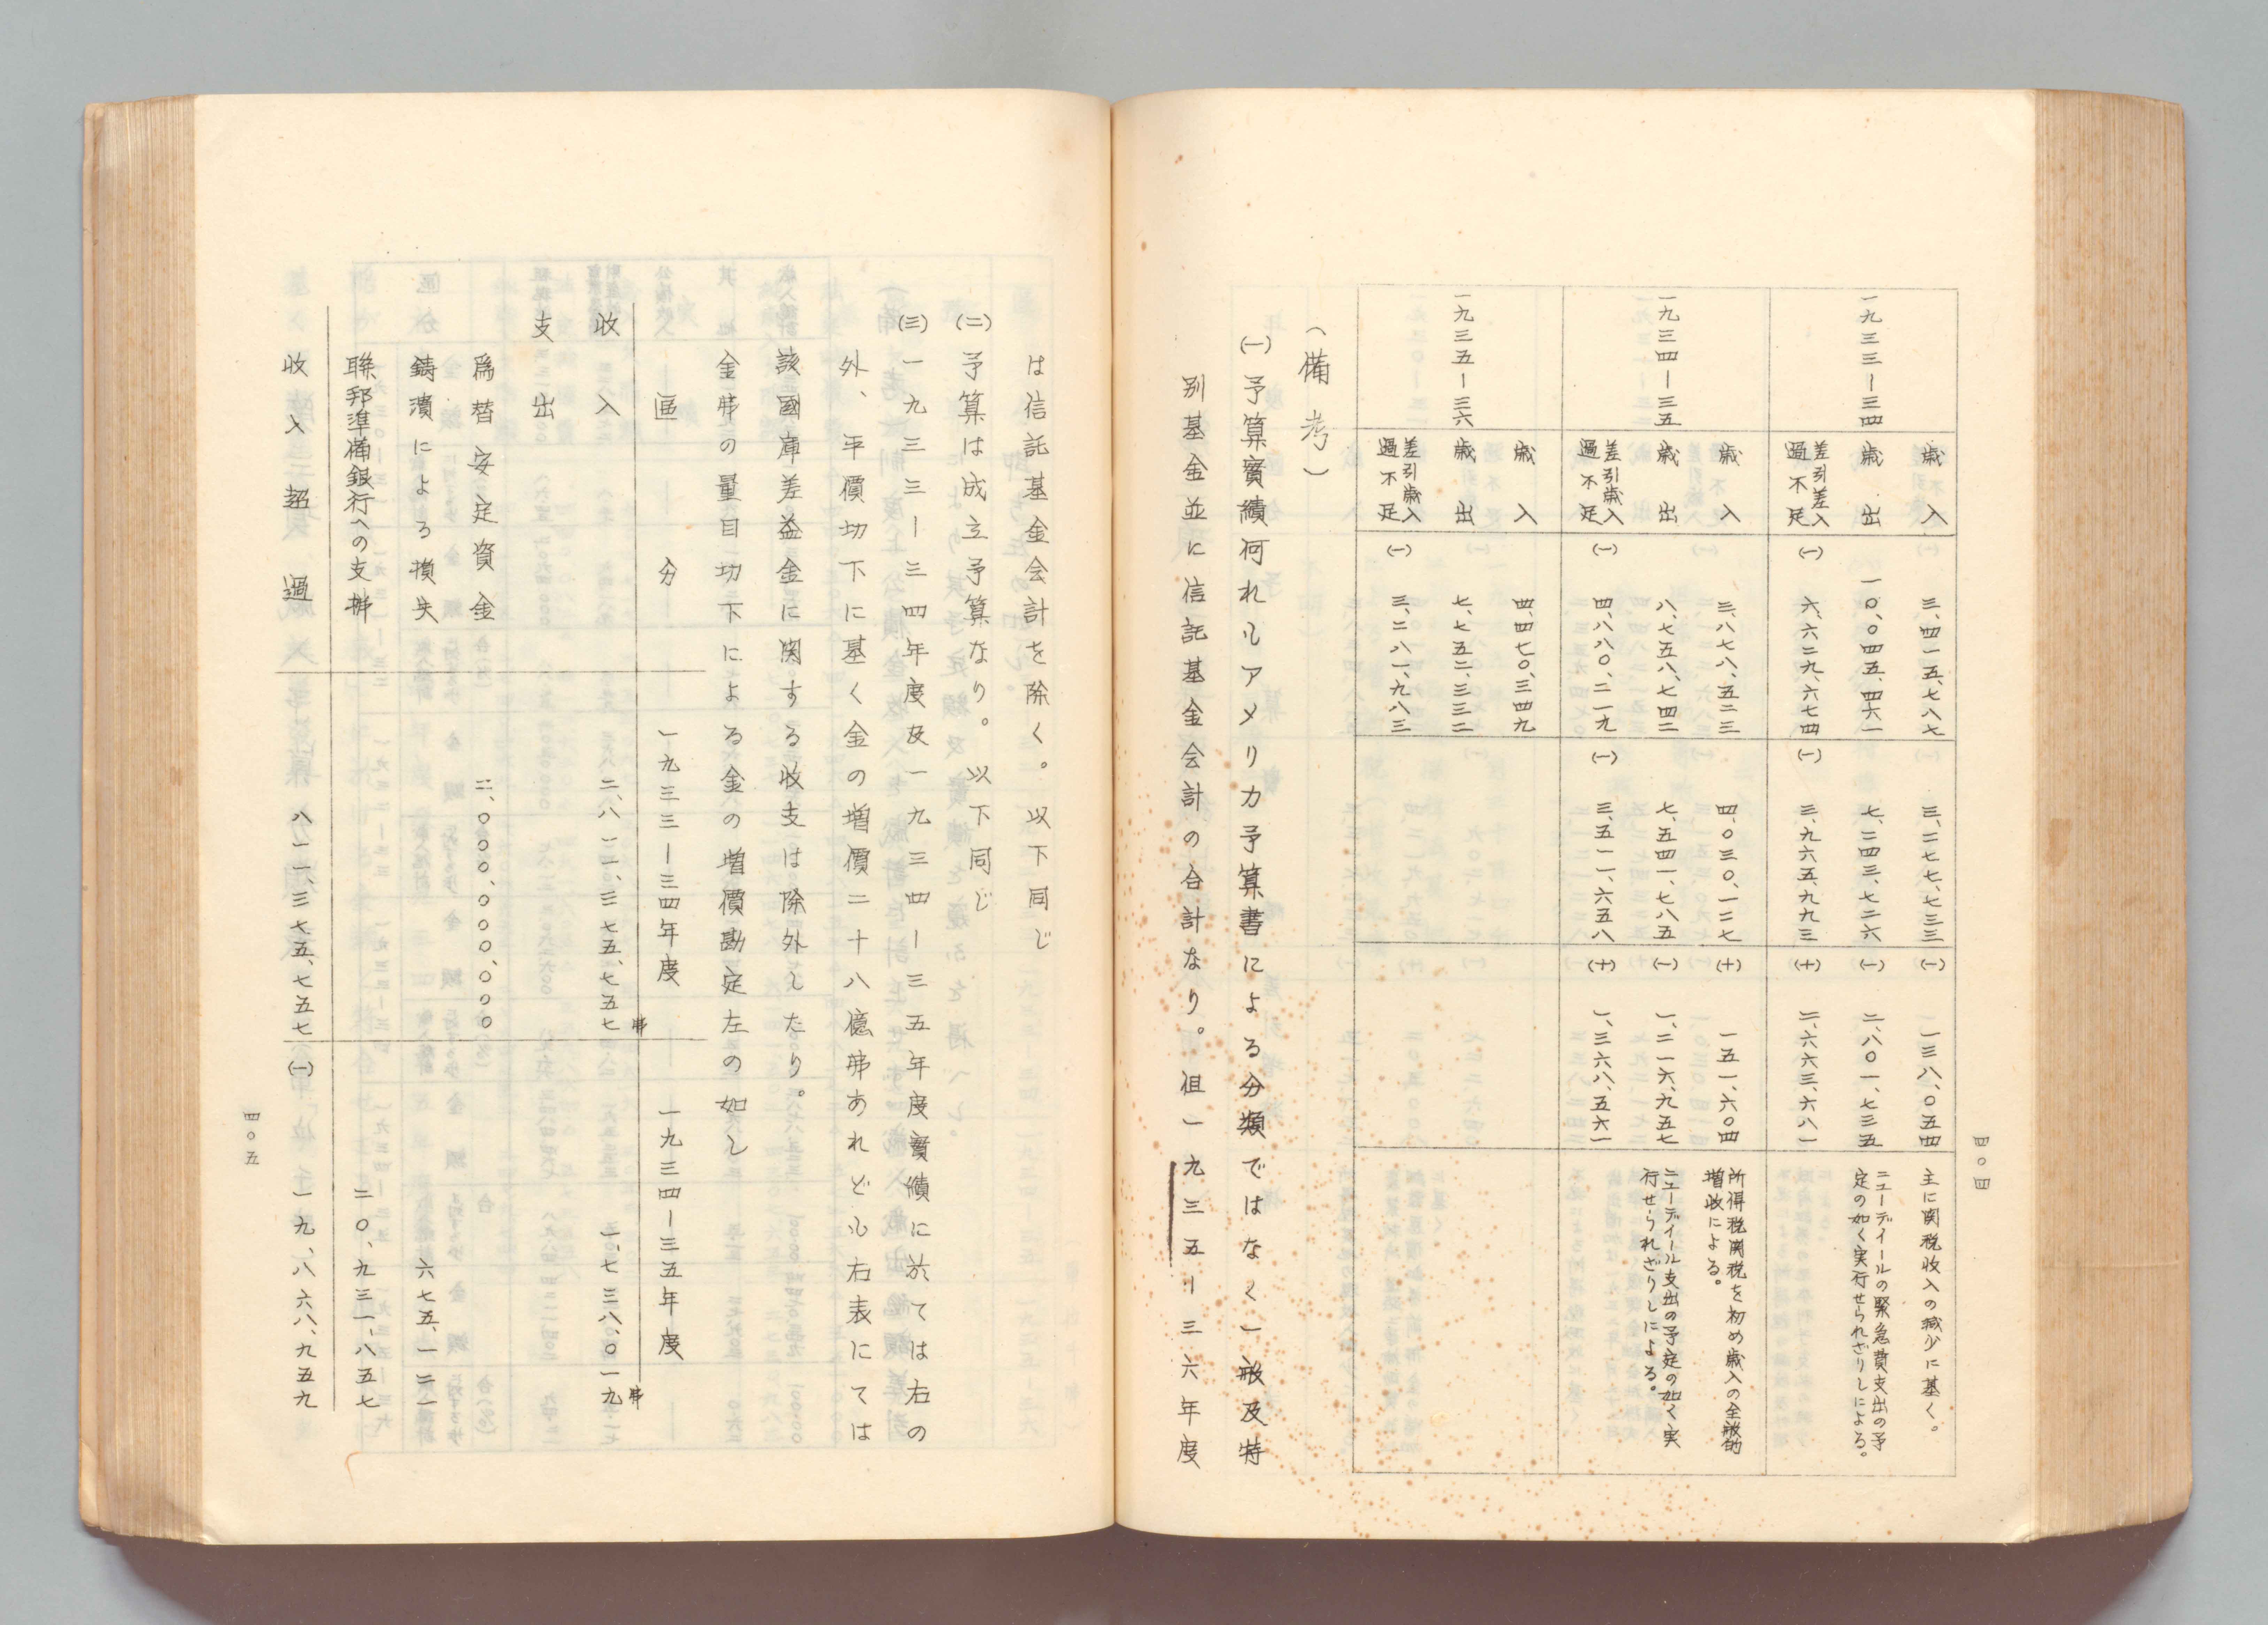 四〇四
一九三三ー三四
歳入 三、四一五、七八七 三、二七七、七三三 (一) 一三八、〇五四 主に関税収入の減少に基く。
歳出 一〇、〇四五、四六一 七、二四三、七二六 (一) 二、八〇一、七三五 ニューディールの緊急費支出の予
定の如く実行せられざりしによる。
差引差入
過不足 (一) 六、六二九、六七四 (一) 三、九六五、九九三 (十) 二、六六三、六八一
一九三四ー三五
歳入 三、八七八、五二三 四、〇三〇、一二七 (十) 一五一、六〇四 所得税関税を初め歳入の全般的
増收による。
歳出 八、七五八、七四二 七、五四一、七八五 (一) 一、二一六、九五七 ニューディール支出の予定の如く実
行せられざりしによる。
差引歳入
過不足 (一) 四、八八〇、二一九 (一) 三、五一一、六五八 (十) 一、三六八、五六一
一九三五ー三六
歳入 四、四七〇、三四九
歳出 七、七五二、三三二
差引歳入
過不足 (一) 三、二八一、九八三
(備考)
(一)予算實績何れもアメリカ予算書による分類ではなく一般及特
別基金並に信託基金会計の合計なり。但一九三五ー三六年度
は信託基金会計を除く。以下同じ
(二)予算は成立予算なり。以下同じ
(三)一九三三ー三四年度及一九三四ー三五年度實績に於ては右の
外、平價切下に基く金の増價二十八億弗あれども右表にては
該國庫差益金に関する收支は除外したり。
金弗の量目切下による金の増價勘定左の如し
區分 一九三三ー三四年度 一九三四ー三五年度
收入 二、八一一、三七五、七五七弗 一、七三八、〇一九弗
支出
為替安定資金 二、〇〇〇、〇〇〇、〇〇〇
鋳潰による損失 六七五、一二一
聯邦準備銀行への支拂 二〇、九三一、八五七
收入超過 八一一、三七五、七五七 (一) 一九、八六八、九五九
四〇五